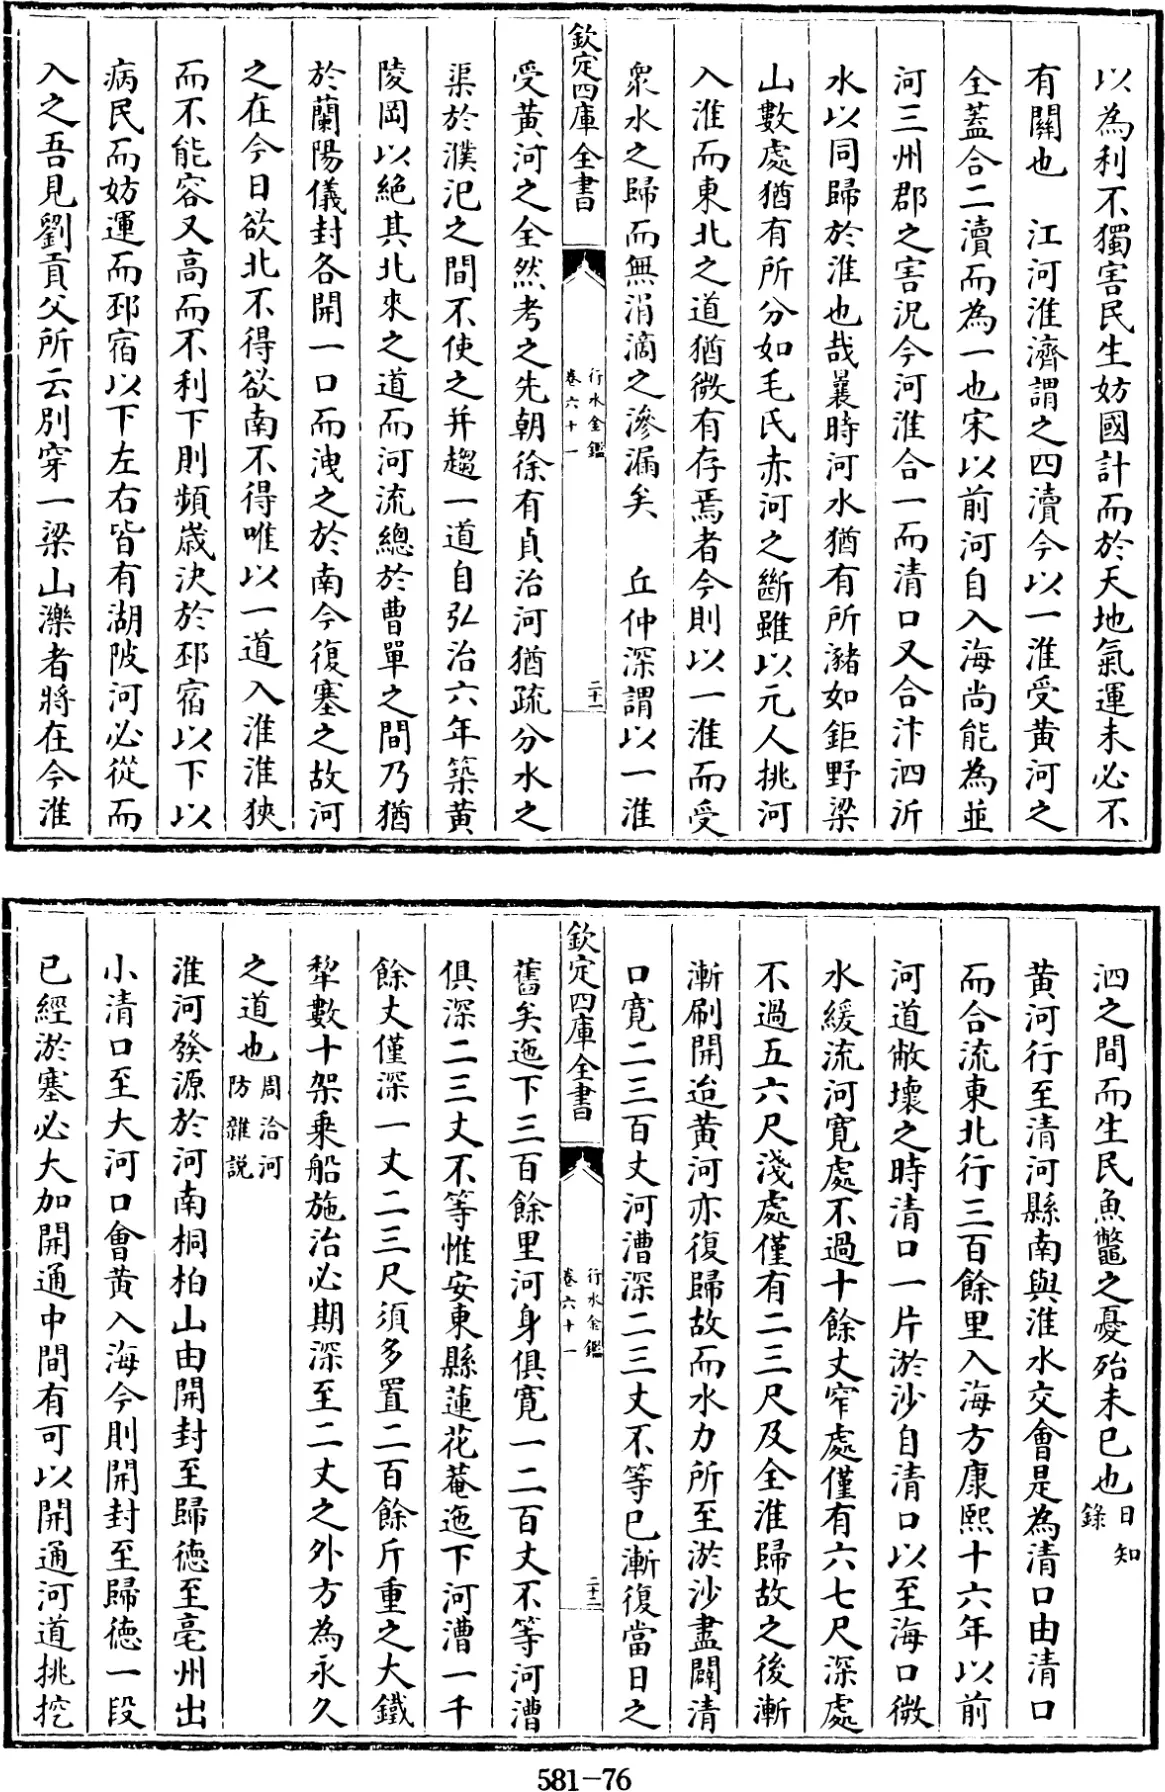 以為利不獨害民生妨國計而於天地氣運未必不
有關也　江河淮濟謂之四瀆今以一淮受黄河之
全蓋合二瀆而為一也宋以前河自入海尚能為並
河三州郡之害況今河淮合一而清口又合汴泗沂
水以同歸於淮也哉曩時河水猶有所瀦如鉅野梁
山數處猶有所分如毛氏赤河之斷雖以元人挑河
入淮而東北之道猶微有存焉者今則以一淮而受
衆水之歸而無涓滴之滲漏矣　丘仲深謂以一淮
欽定四庫全書
行水金鑑
卷六十一
二十一
受黄河之全然考之先朝徐有貞治河猶疏分水之
渠於濮汜之間不使之并趨一道自弘治六年築黄
陵岡以絶其北來之道而河流總於曹單之間乃猶
於蘭陽儀封各開一口而洩之於南今復塞之故河
之在今日欲北不得欲南不得唯以一道入淮淮狹
而不能容又高而不利下則頻嵗決於邳宿以下以
病民而妨運而邳宿以下左右皆有湖陂河必從而
入之吾見劉貢父所云別穿一梁山濼者將在今淮
泗之間而生民魚鼈之憂殆未已也日知
錄
黄河行至清河縣南與淮水交會是為清口由清口
而合流東北行三百餘里入海方康熙十六年以前
河道敝壞之時清口一片淤沙自清口以至海口微
水緩流河寛處不過十餘丈窄處僅有六七尺深處
不過五六尺淺處僅有二三尺及全淮歸故之後漸
漸刷開迨黄河亦復歸故而水力所至淤沙盡闢清
口寛二三百丈河漕深二三丈不等已漸復當日之
欽定四庫全書
行水金鑑
卷六十一
二十二
舊矣迤下三百餘里河身俱寛一二百丈不等河漕
俱深二三丈不等惟安東縣蓮花菴迤下河漕一千
餘丈僅深一丈二三尺須多置二百餘斤重之大鐵
犂數十架乗船施治必期深至二丈之外方為永久
之道也周洽河
防雜説
淮河發源於河南桐柏山由開封至歸徳至亳州出
小清口至大河口會黄入海今則開封至歸徳一段
已經淤塞必大加開通中間有可以開通河道挑挖
581-76